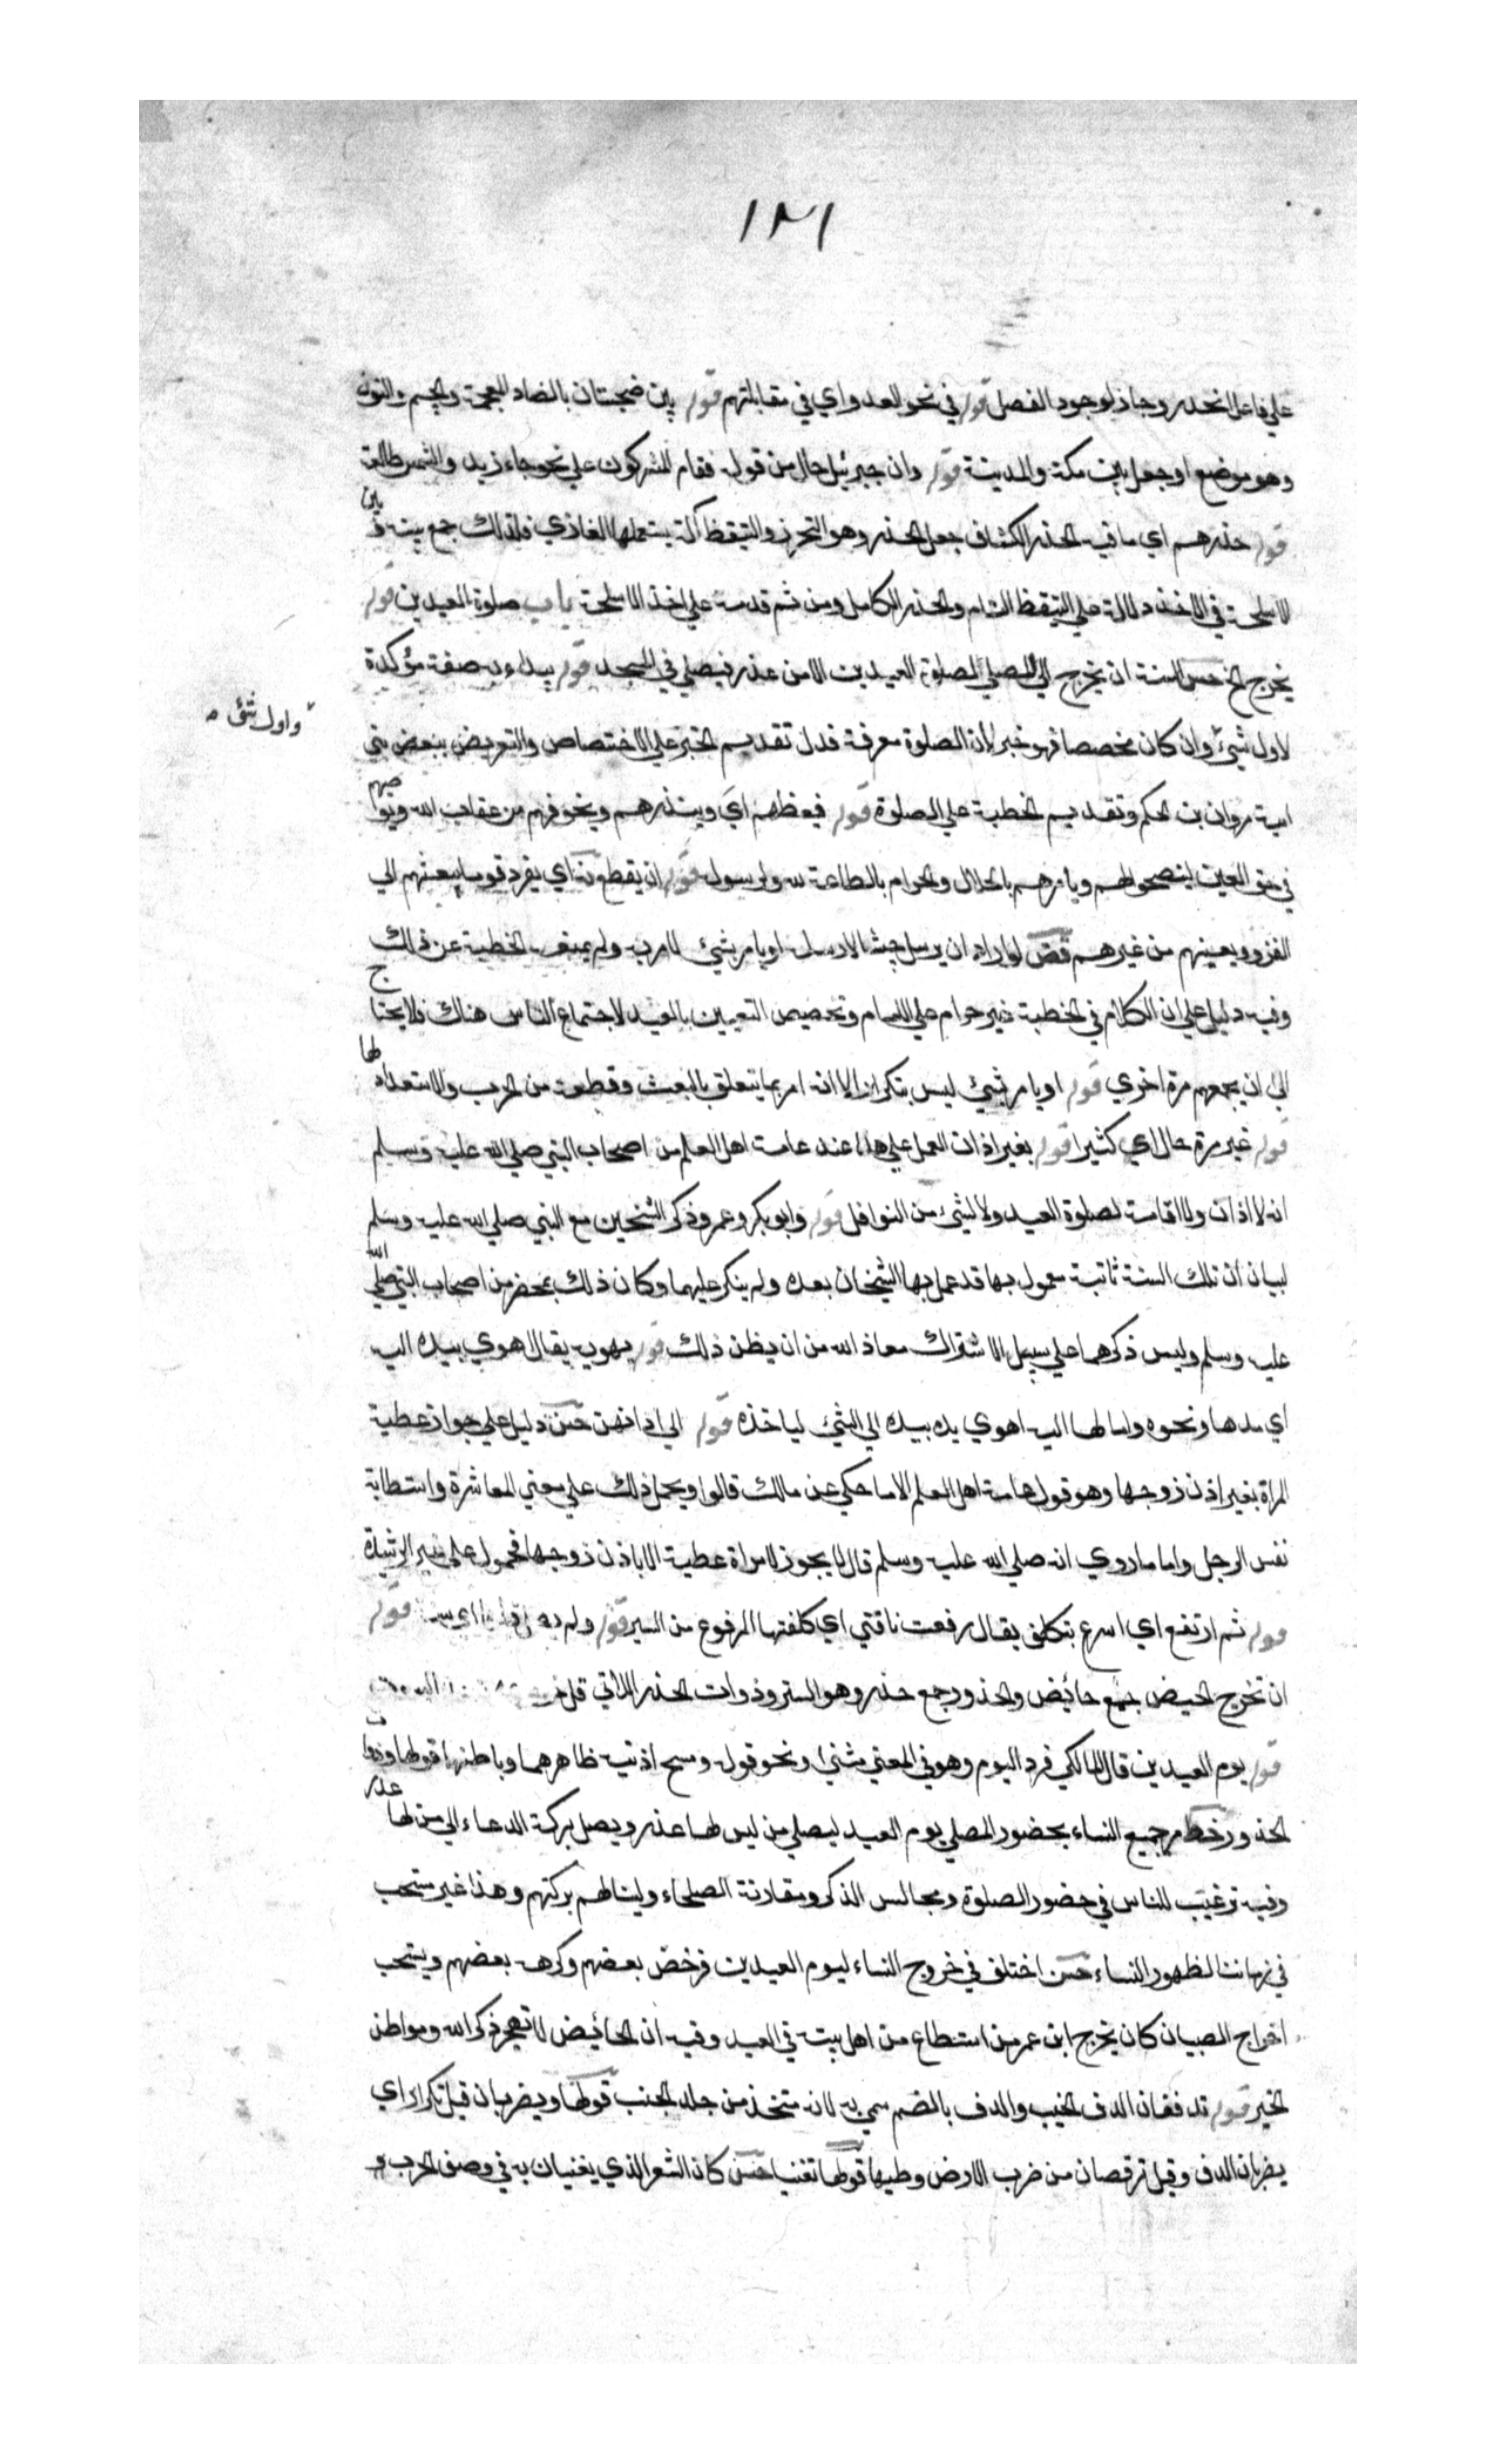 ١٢١
علي فاعل انحدر وجاز لوجود الفصل قوله في نحو العدو اي في مقابلتهم قوله بين ضجنان بالضاد المعجمة والجيم والنون
وهو موضع او جبل بين مكة والمدينة قوله وان جبرئيل حال من قوله فقام المشركون علي نحو جاء زيد والشمس طالعة
قوله حذرهم اي ما فيه الحذر الكشاف جعل الحذر وهو التحرز والتيقظ آلة يستعملها الغازي فلذلك جمع بينه و بين
الاسلحة في الاخذ دلالة علي التيقظ التام والحذر الكامل ومن ثم قدمه علي اخذ الاسلحة باب صلوة العيدين قوله
يخرج الخ حسن السنة ان يخرج الي المصلي لصلوة العيدين الا من عذر فيصلي في المسجد قوله يبداء به صفة مؤكدة
واول شئ
لاول شيئ وان كان مخصصا فهو خبر لان الصلوة معرفة فدل تقديم الخبر علي الاختصاص والتعريض ببعض بني
امية مروان بن الحكم وتقديم الخطبة علي الصلوة قوله فيعظهم اي وينذرهم ويخوفهم من عقاب الله ويوصيهم
في حق الغير لينصحوا لهم ويامرهم بالحلال والحرام بالطاعة لله ولرسوله قوله ان يقطع بعثا اي يفرد قوما يبعثهم الي
الغزو ويعينهم من غيرهم قض لو اراد ان يرسل جيشا لارسله او يامر بشيئ لامر به ولم يمنعه الخطبة عن ذلك
وفيه دليل علي ان الكلام في الخطبة غير حرام علي الامام وتخصيص التعيين بالعيد لاجتماع الناس هناك فلا يحتاج
الي ان يجمعهم مرة اخري قوله او يامر بشيئ ليس بتكرار الا انه امر بما يتعلق بالبعث وقطعه من الحرب والاستعداد لها
قوله غير مرة حال اي كثيرا قوله بغير اذان العمل علي هذا عند عامة اهل العلم من اصحاب النبي صلي الله عليه وسلم
انه لا اذان ولا اقامة لصلوة العيد ولا لشيئ من النوافل قوله وابو بكر وعمر وذكر الشيخين مع النبي صلي الله عليه وسلم
لبيان ان تلك السنة ثابتة معمول بها قد عمل بها الشيخان بعده ولم ينكر عليهما وكان ذلك بمحضر من اصحاب النبي صلي الله
عليه وسلم وليس ذكرهما علي سبيل الاشتراك معاذ الله من ان يظن ذلك قوله يهوين يقال هوي بيده اليه
اي مدها ونحوه وامالها اليه اهوي يده بيده الي الشيئ لياخذه قوله الي اذانهن حسن دليل علي جواز عطية
المراة بغير اذن زوجها وهو قول عامة اهل العلم الا ما حكي عن مالك قالوا ويحمل ذلك علي معني المعاشرة واستطابة
نفس الرجل واما ما روي انه صلي الله عليه وسلم قال لا يجوز لامراة عطية الا باذن زوجها فمحمول علي غير الرشيدة
قوله ثم ارتفع اي اسرع بتكلف يقال رفعت ناقتي اي كلفتها المرفوع من السير قوله ولم قوله
ان تخرج الحيض جمع حائيض والخدور جمع خدر وهو الستر وذوات الخدر اللاتي قل
قوله يوم العيدين قال المالكي فرد اليوم وهو في المعني مثني ونحو قوله ومسح اذنيه ظاهرهما وباطنهما قولها وذوات
الخدور خط امر جميع النساء بحضور المصلي يوم العيد ليصلي من ليس لها عذر ويصل بركة الدعاء الي من لها عذر
وفيه ترغيب للناس في حضور الصلوة ومجالس الذكر ومقاربة الصلحاء ولينالهم بركتهم وهذا غير مستحب
في زماننا لظهور النساء حسن اختلف في خروج النساء ليوم العيدين فرخص بعضهم وكرهه بعضهم ويستحب
اخراج الصبيان كان يخرج ابن عمر من استطاع من اهل بيته في العيد وفيه ان الحائيض لا تهجر ذكر الله ومواطن
الخير قوله تدففان الدف الجنب والدف بالضم سمي به لانه متخذ من جلد الجنب قولها ويضربان قيل تكرار اي
يضربان الدف وقيل ترقصان من ضرب الارض وطيها قولها تغنيا حسن كان الشعر الذي يغنيان به في وصف الحرب و